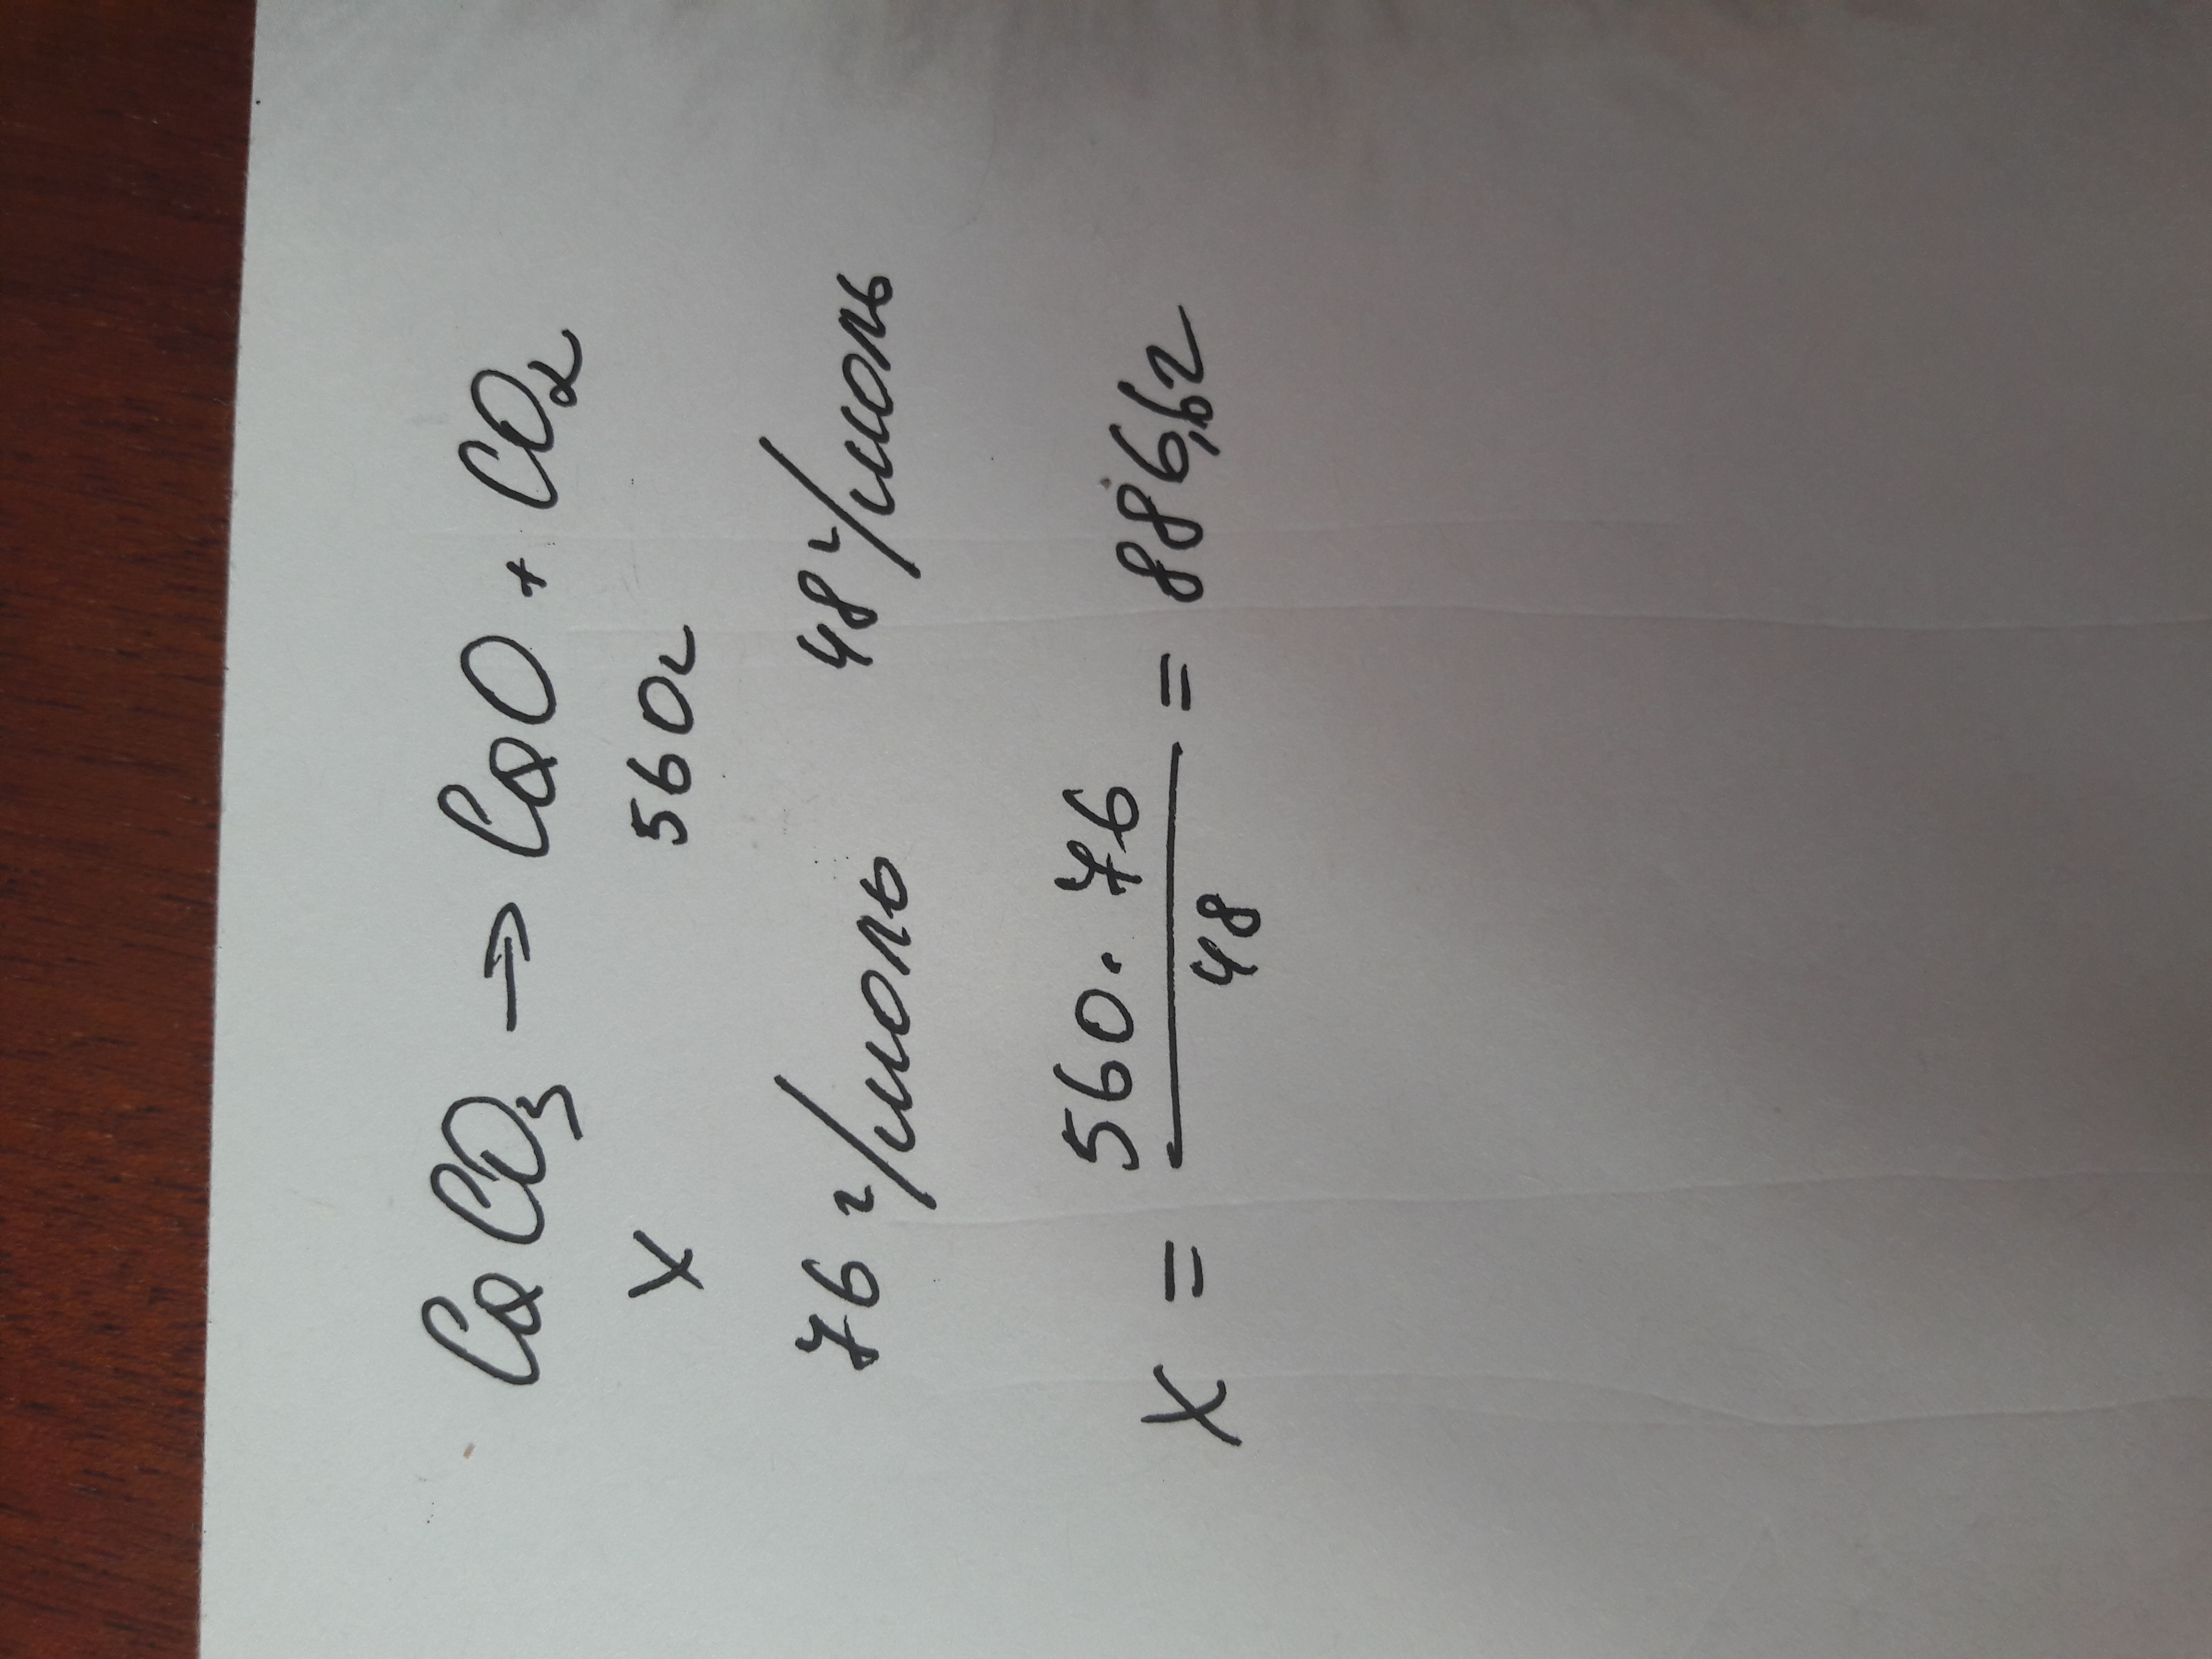 CaCO₃ → CaO + CO₂
x 560г
76 г/моль 48 г/моль
x = 560 · 76 / 48 = 886,6г